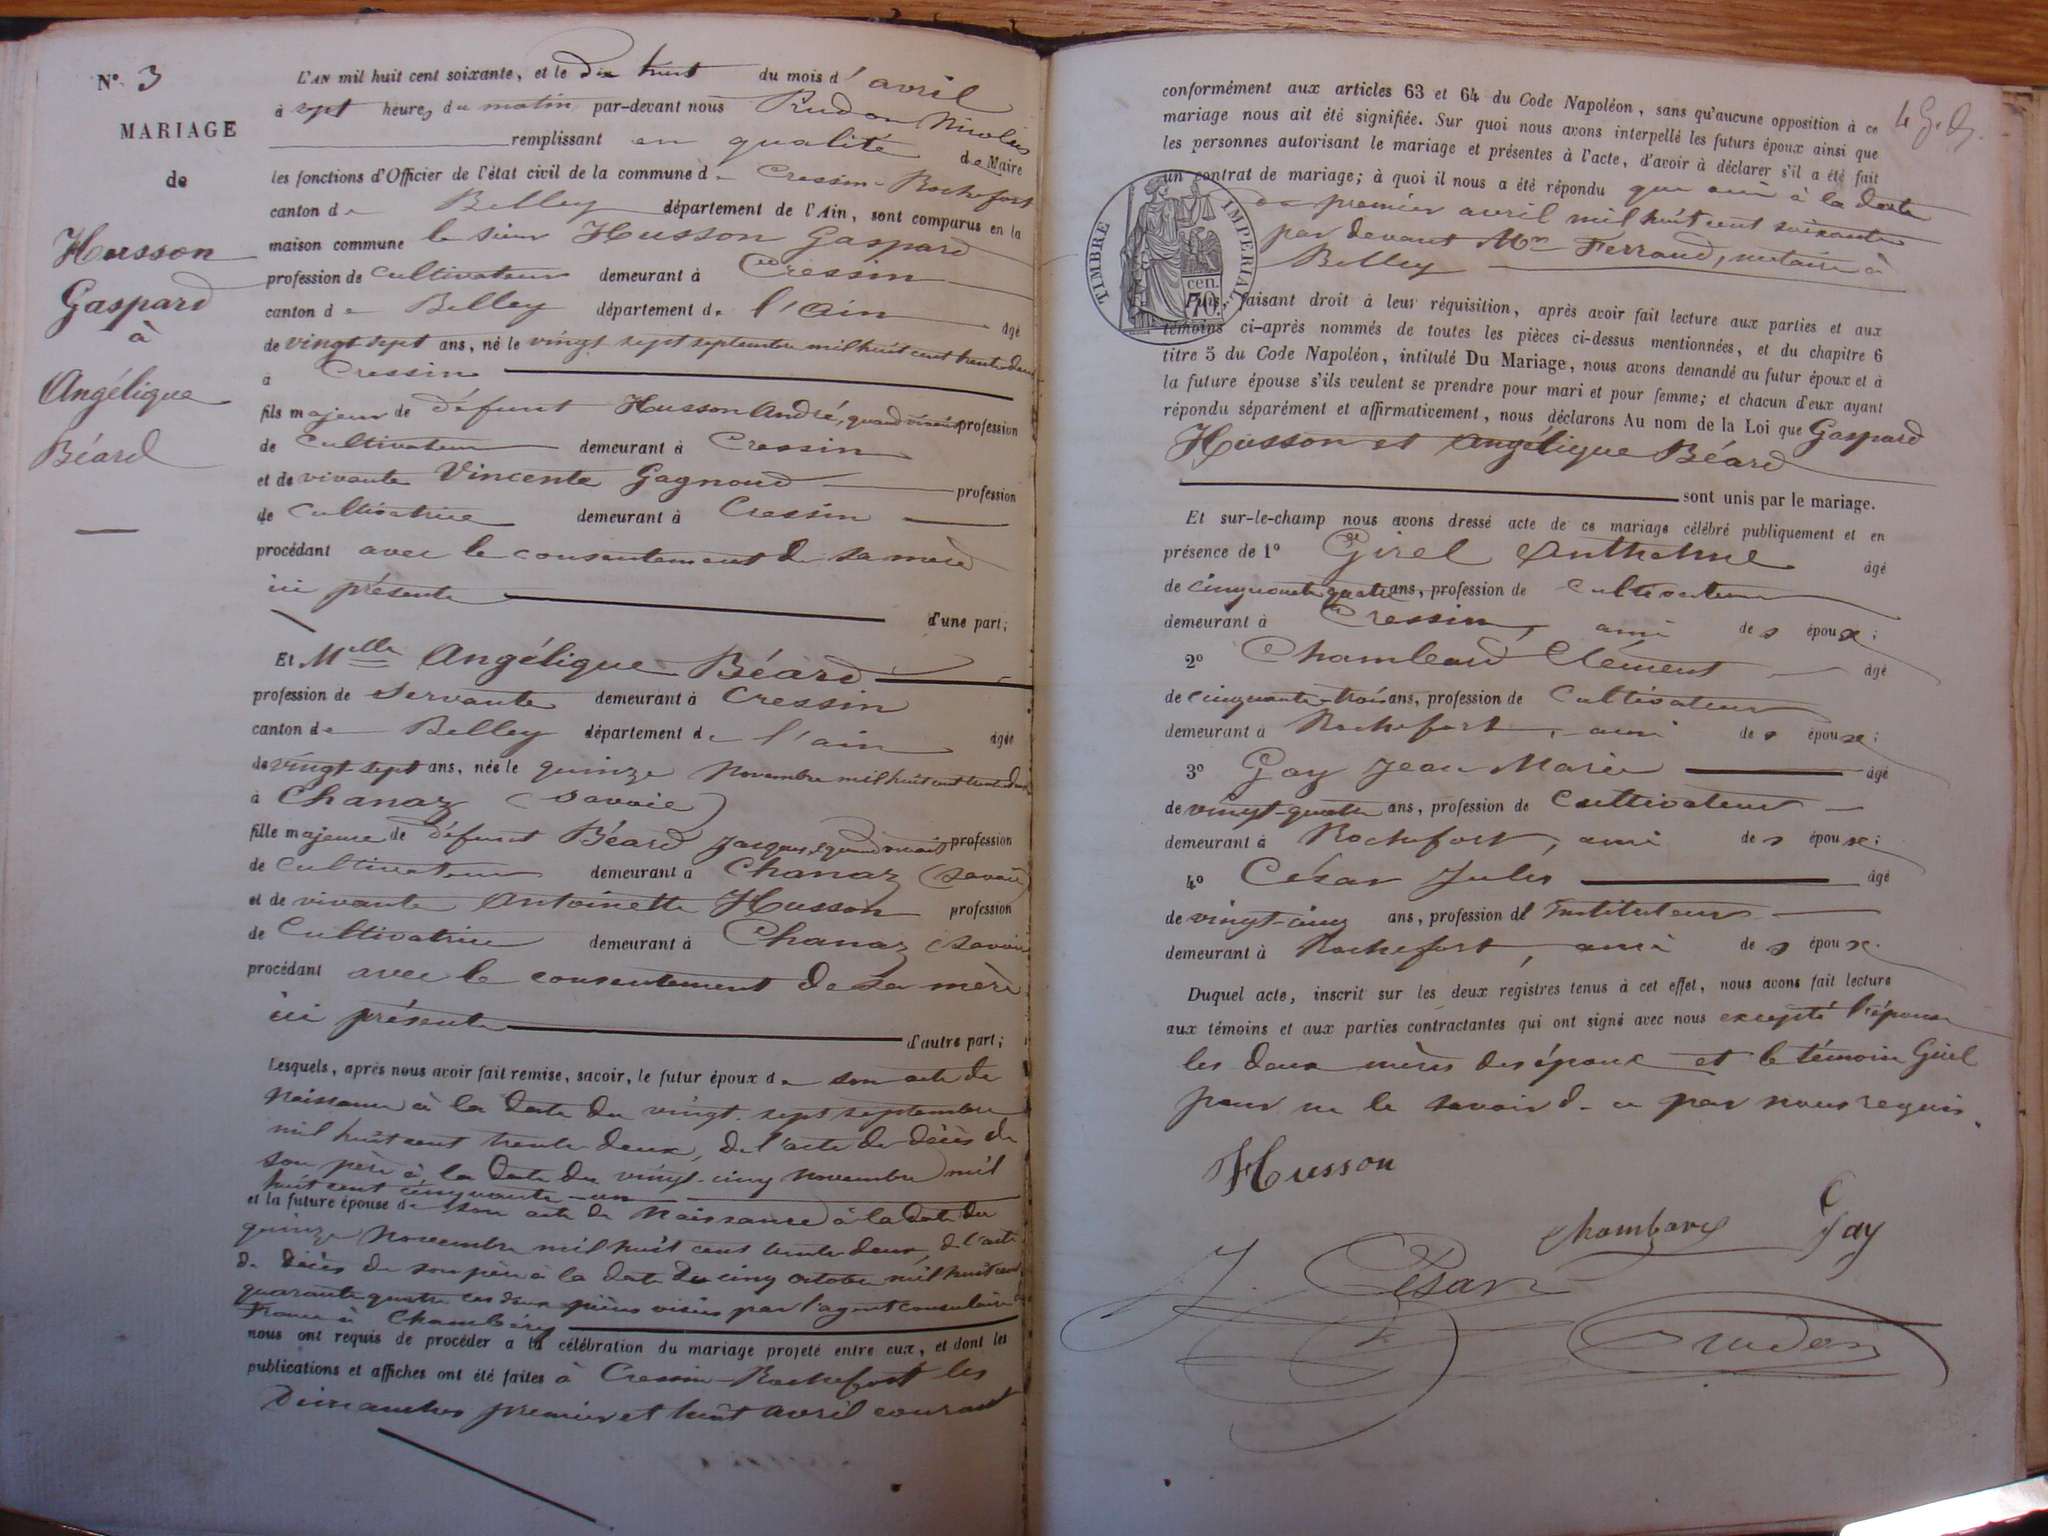 N° 3
MARIAGE
de
Husson
Gaspard
à
Angélique
Béard
L'AN mil huit cent soixante, et le dix huit du mois d'avril
à sept heures du matin par-devant nous Prudon Nicolas
remplissant en qualité de Maire
les fonctions d'Officier de l'état civil de la commune de Cressin-Rochefort
canton de Belley département de l'Ain, sont comparus en la
maison commune le sieur Husson Gaspard
profession de cultivateur demeurant à Cressin
canton de Belley département de l'Ain âgé
de vingt sept ans, né le vingt sept septembre mil huit cent trente deux
à Cressin
fils majeur de défunt Husson André, quand vivait profession
de cultivateur demeurant à Cressin
et de vivante Vincente Gagnoud profession
de cultivatrice demeurant à Cressin
procédant avec le consentement de sa mère
ici présente
d'une part;
Et Melle Angélique Béard
profession de servante demeurant à Cressin
canton de Belley département de l'ain âgée
de vingt sept ans, née le quinze Novembre mil huit cent trente deux
à Chanaz (Savoie)
fille majeure de défunt Béard Jacques, quand vivait profession
de cultivateur demeurant à Chanaz (Savoie)
et de vivante Antoinette Husson profession
de Cultivatrice demeurant à Chanaz (Savoie
procédant avec le consentement de sa mère
ici présente
d'autre part;
Lesquels, après nous avoir fait remise, savoir, le futur époux de son acte de
Naissance à la date du vingt-sept septembre
mil huit cent trente deux, de l'acte de décès de
son père à la date du vingt-cinq novembre mil
huit cent cinquante-un
et la future épouse de son acte de Naissance à la date du
quinze Novembre mil huit cent trente deux, de l'acte
de décès de son père à la date du cinq octobre mil huit cent
quarante quatre ces deux pièces visées par l'agent consulaire de
France à Chambéry
nous ont requis de procéder a la célébration du mariage projeté entre eux, et dont les
publications et affiches ont été faites à Cressin-Rochefort les
Dimanches premier et huit avril courant
4 G. D.
conformément aux articles 63 et 64 du Code Napoléon, sans qu'aucune opposition à ce
mariage nous ait été signifiée. Sur quoi nous avons interpellé les futurs époux ainsi que
les personnes autorisant le mariage et présentes à l'acte, d'avoir à déclarer s'il a été fait
un contrat de mariage; à quoi il nous a été répondu que oui à la date
du premier avril mil huit cent soixante
par devant Mre Ferraud, notaire à
Belley
TIMBRE IMPERIAL
70 cen.
Puis, faisant droit à leur réquisition, après avoir fait lecture aux parties et aux
témoins ci-après nommés de toutes les pièces ci-dessus mentionnées, et du chapitre 6
titre 5 du Code Napoléon, intitulé Du Mariage, nous avons demandé au futur époux et à
la future épouse s'ils veulent se prendre pour mari et pour femme; et chacun d'eux ayant
répondu séparément et affirmativement, nous déclarons Au nom de la Loi que Gaspard
Husson et Angélique Béard
sont unis par le mariage.
Et sur-le-champ nous avons dressé acte de ce mariage célébré publiquement et en
présence de 1° Girel Anthelme âgé
de cinquante quatre ans, profession de cultivateur
demeurant à Cressin, ami des époux;
2° Chambeard Clément âgé
de cinquante-trois ans, profession de cultivateur
demeurant à Rochefort, ami des époux;
3° Gay Jean Marie âgé
de vingt-quatre ans, profession de cultivateur
demeurant à Rochefort, ami des époux;
4° César Jules âgé
de vingt-cinq ans, profession d'Instituteur
demeurant à Rochefort, ami des époux.
Duquel acte, inscrit sur les deux registres tenus à cet effet, nous avons fait lecture
aux témoins et aux parties contractantes qui ont signé avec nous excepté l'épouse
les deux mères des époux et le témoin Girel
pour ne le savoir d. ce par nous requis.
Husson
Chambard Gay
J. César
Prudon